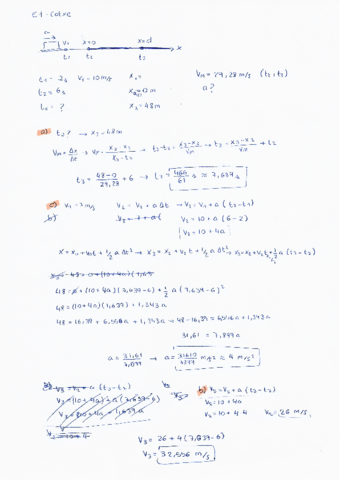 E1-Coche
v₁ x=0 x=d
t₁ t₂ t₃ x
t₁ = 2s v₁ = 10 m/s x₁ = Vm = 29,28 m/s (t₂, t₃)
t₂ = 6s x₂ = 0 m a?
t₃ = ? x₃ = 48m
a) t₃? → x₃ = 48m
Vm = Δx/Δt → Vm = (x₃-x₂)/(t₃-t₂) → t₃-t₂ = (x₃-x₂)/Vm → t₃ = (x₃-x₂)/Vm + t₂
t₃ = (48-0)/29,28 + 6 → t₃ = 466/61 s ≈ 7,639 s
c) V₂ = V₁ + a Δt → V₂ = V₁ + a (t₂-t₁)
b) V₂ = 10 + a (6-2)
V₂ = 10 + 4a
x = x₀ + v₀t + 1/2 a Δt² → x₃ = x₂ + v₂ t + 1/2 a Δt² → x₃ = x₂ + v₂ t + 1/2 a (t₃-t₂)²
48 = 0 + (10+4a) (7,639-6) + 1/2 a (7,639-6)²
48 = (10+4a) (1,639) + 1,343a
48 = 16,39 + 6,556a + 1,343a → 48-16,39 = 6,556a + 1,343a
31,61 = 7,899a
a = 31,61/7,899 → a = 31610/7899 m/s² ≈ 4 m/s²
V₃ = V₂ + a (t₃-t₂)
V₃ = (10+4a) + a (7,639-6)
V₃ = 10 + 4a + 1,639a
b) V₂ = V₁ + a (t₂-t₁)
V₂ = 10 + 4a
V₂ = 10 + 4·4 V₂ = 26 m/s
V₃ = 26 + 4 (7,639-6)
V₃ = 32,556 m/s